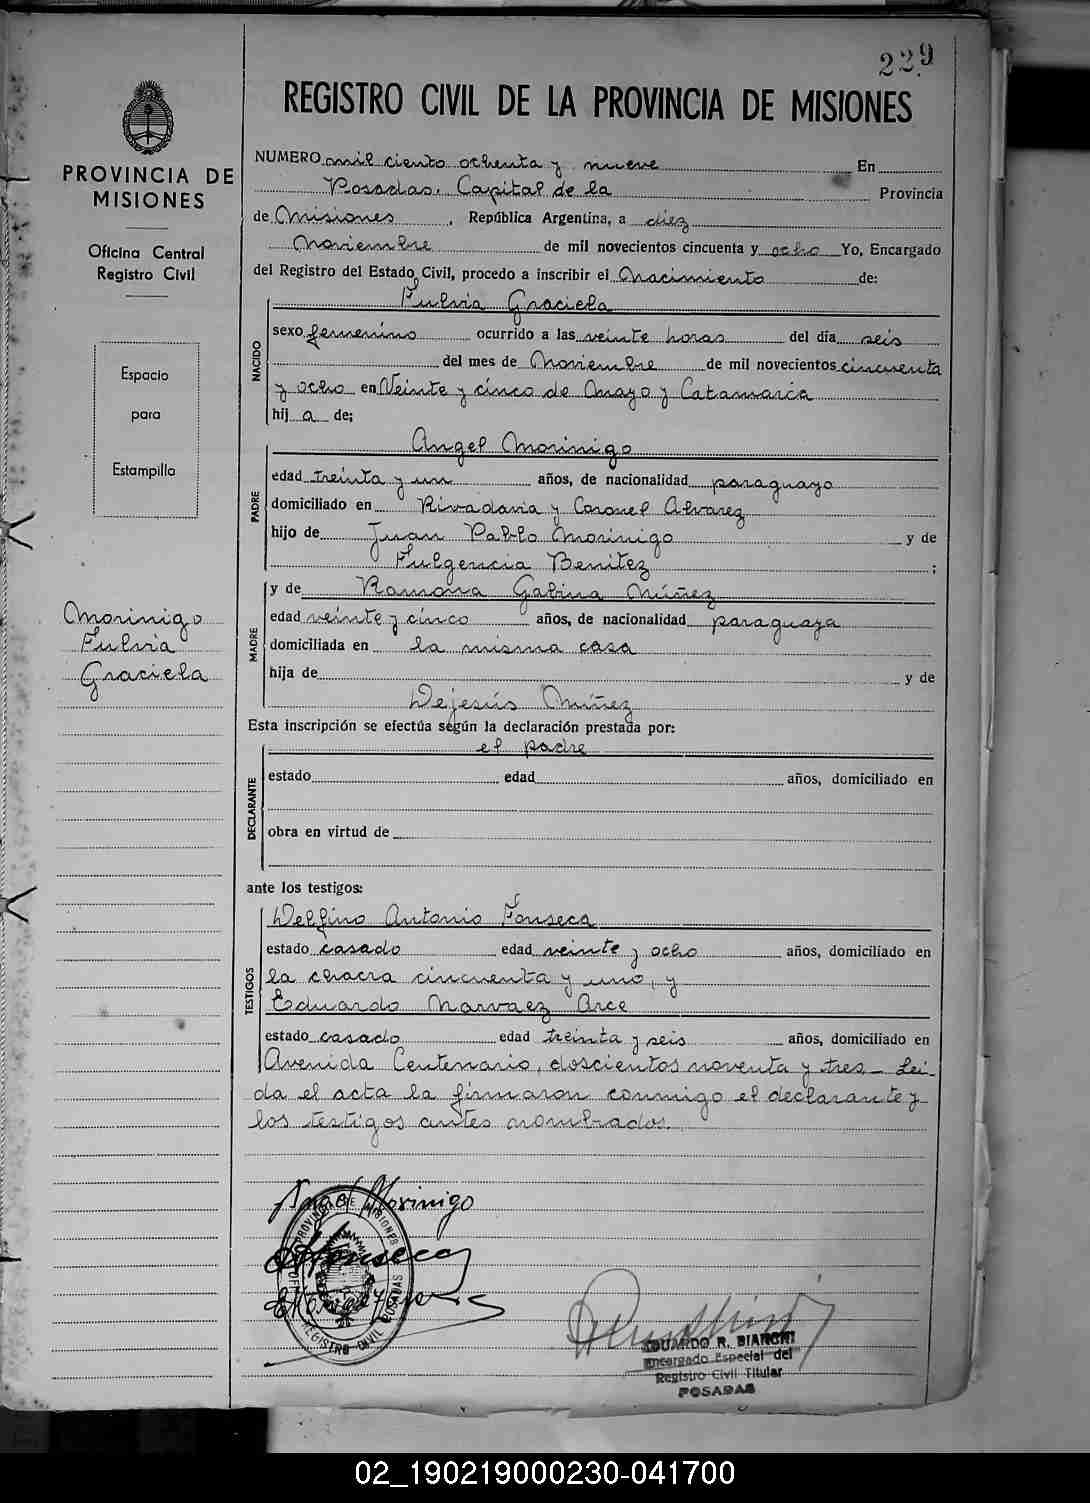 229
REGISTRO CIVIL DE LA PROVINCIA DE MISIONES
PROVINCIA DE
MISIONES
Oficina Central
Registro Civil
Espacio
para
Estampilla
Morinigo
Fulvia
Graciela
NUMERO mil ciento ochenta y nueve En
Posadas, Capital de la Provincia
de Misiones, República Argentina, a diez
Noviembre de mil novecientos cincuenta y ocho Yo, Encargado
del Registro del Estado Civil, procedo a inscribir el Nacimiento de:
NACIDO
Fulvia Graciela
sexo femenino ocurrido a las veinte horas del día seis
del mes de Noviembre de mil novecientos cincuenta
y ocho en Veinte y cinco de Mayo y Catamarca
hij a de;
PADRE
Angel Morinigo
edad treinta y un años, de nacionalidad paraguayo
domiciliado en Rivadavia y Coronel Alvarez
hijo de Juan Pablo Morinigo y de
Fulgencia Benitez ;
MADRE
y de Ramona Gabina Núñez
edad veinte y cinco años, de nacionalidad paraguaya
domiciliada en la misma casa
hija de y de
Dejesús Núñez
Esta inscripción se efectúa según la declaración prestada por:
DECLARANTE
el padre
estado edad años, domiciliado en
obra en virtud de
ante los testigos:
TESTIGOS
Delfino Antonio Fonseca
estado casado edad veinte y ocho años, domiciliado en
la chacra cincuenta y uno, y
Eduardo Narvaez Arce
estado casado edad treinta y seis años, domiciliado en
Avenida Centenario, doscientos noventa y tres_ Lei-
da el acta la firmaron conmigo el declarante y
los testigos antes nombrados.
Angel Morinigo
Fonseca
PROVINCIA DE MISIONES
REGISTRO CIVIL POSADAS
EDUARDO R. BIANCHI
Encargado Especial del
Registro Civil Titular
POSADAS
02_190219000230-041700